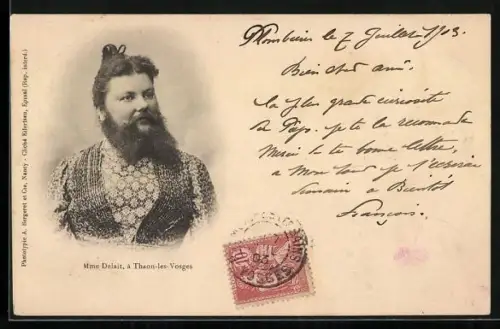 Plombières le 7 Juillet 1903
Bien cher ami.
la plus grande curiosité
du Pays. je te la recommande
Merci de ta bonne lettre,
à mon tour je t'écrirai
demain à Bientôt
François.
Mme Delait, à Thaon-les-Vosges
Phototypie A. Bergeret et Cie, Nancy - Cliché Kiörboë, Epinal (Rep. interd.)
10